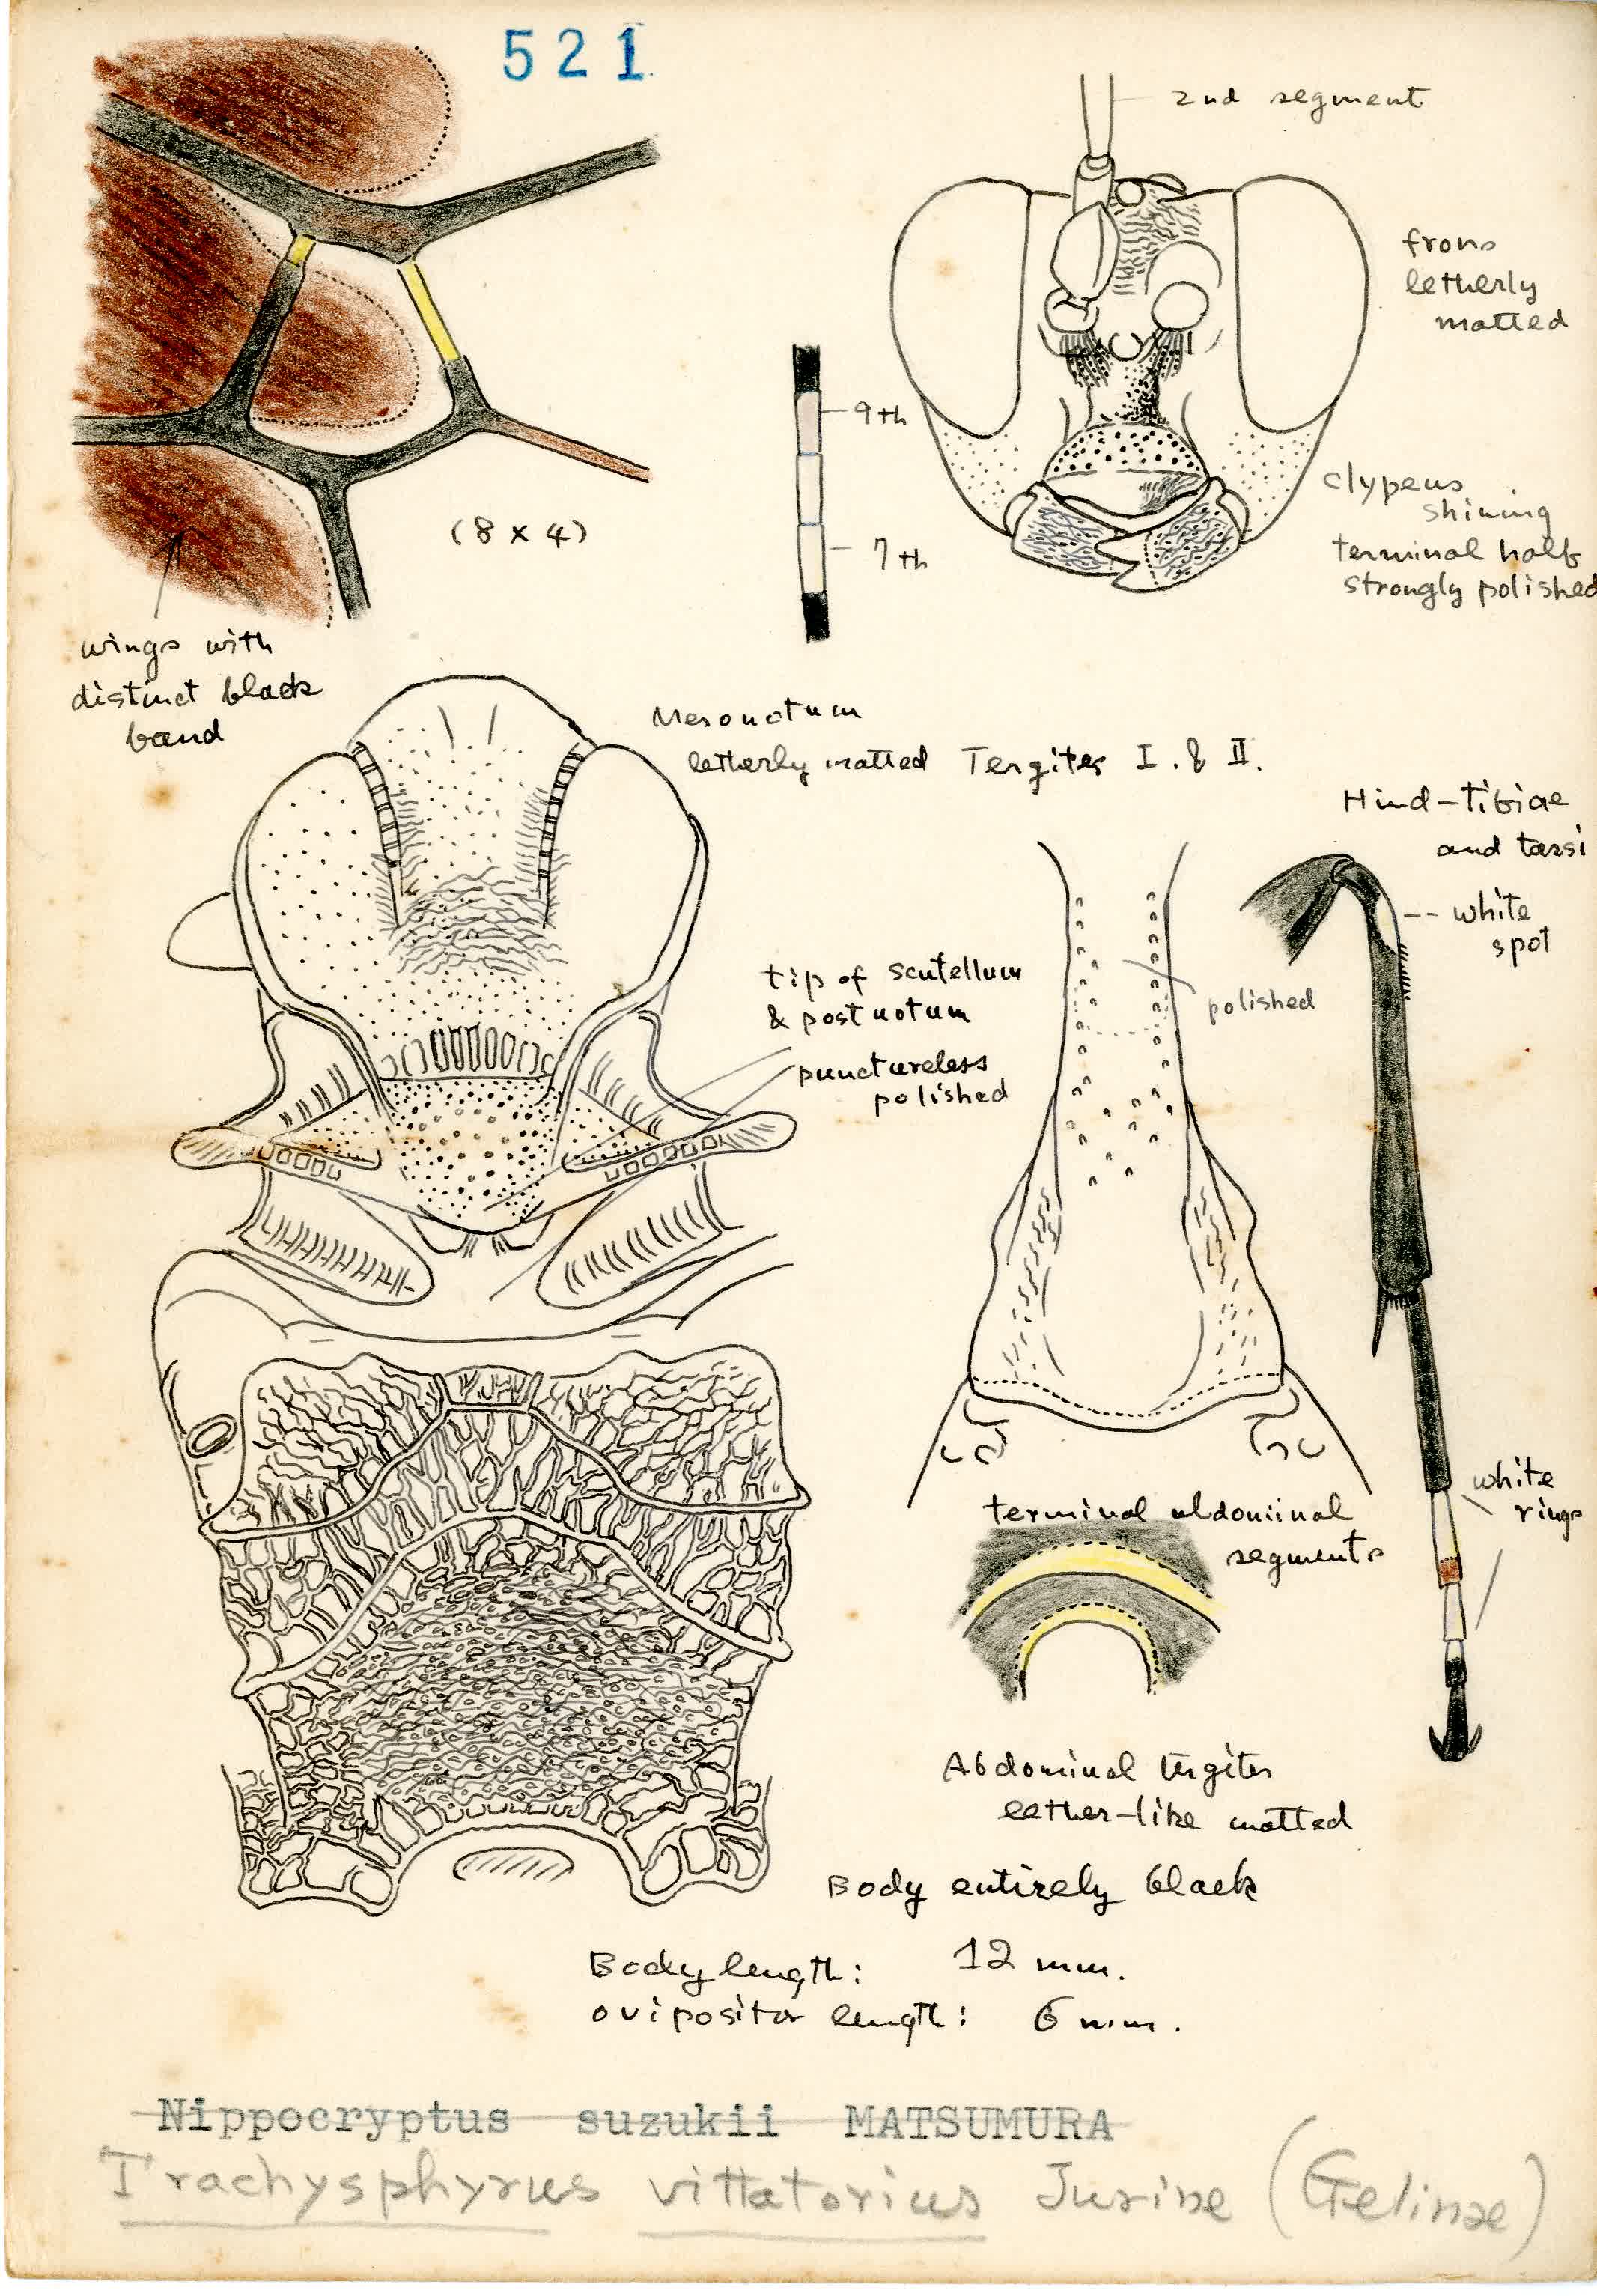 521
2nd segment
frons
letherly
matted
9th
7th
clypeus
shining
terminal half
strongly polished
(8 x 4)
wings with
distinct black
band
Mesonotum
letherly matted
Tergites I. & II.
Hind-tibiae
and tarsi
white
spot
polished
tip of scutellum
& postnotum
punctureless
polished
white
rings
terminal abdominal
segments
Abdominal tergites
lether-like matted
Body entirely black
Body length: 12 mm.
ovipositor length: 6 mm.
Nippocryptus suzukii MATSUMURA
Trachysphyrus vittatorius Jurine (Gelinae)